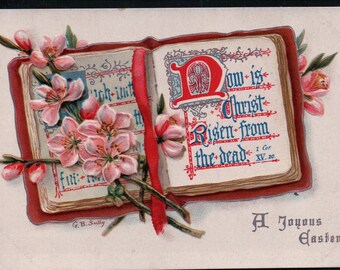 Now is
Christ
Risen from
the dead. 1 Cor
XV. 20.
G. B. Sully
A Joyous
Easter